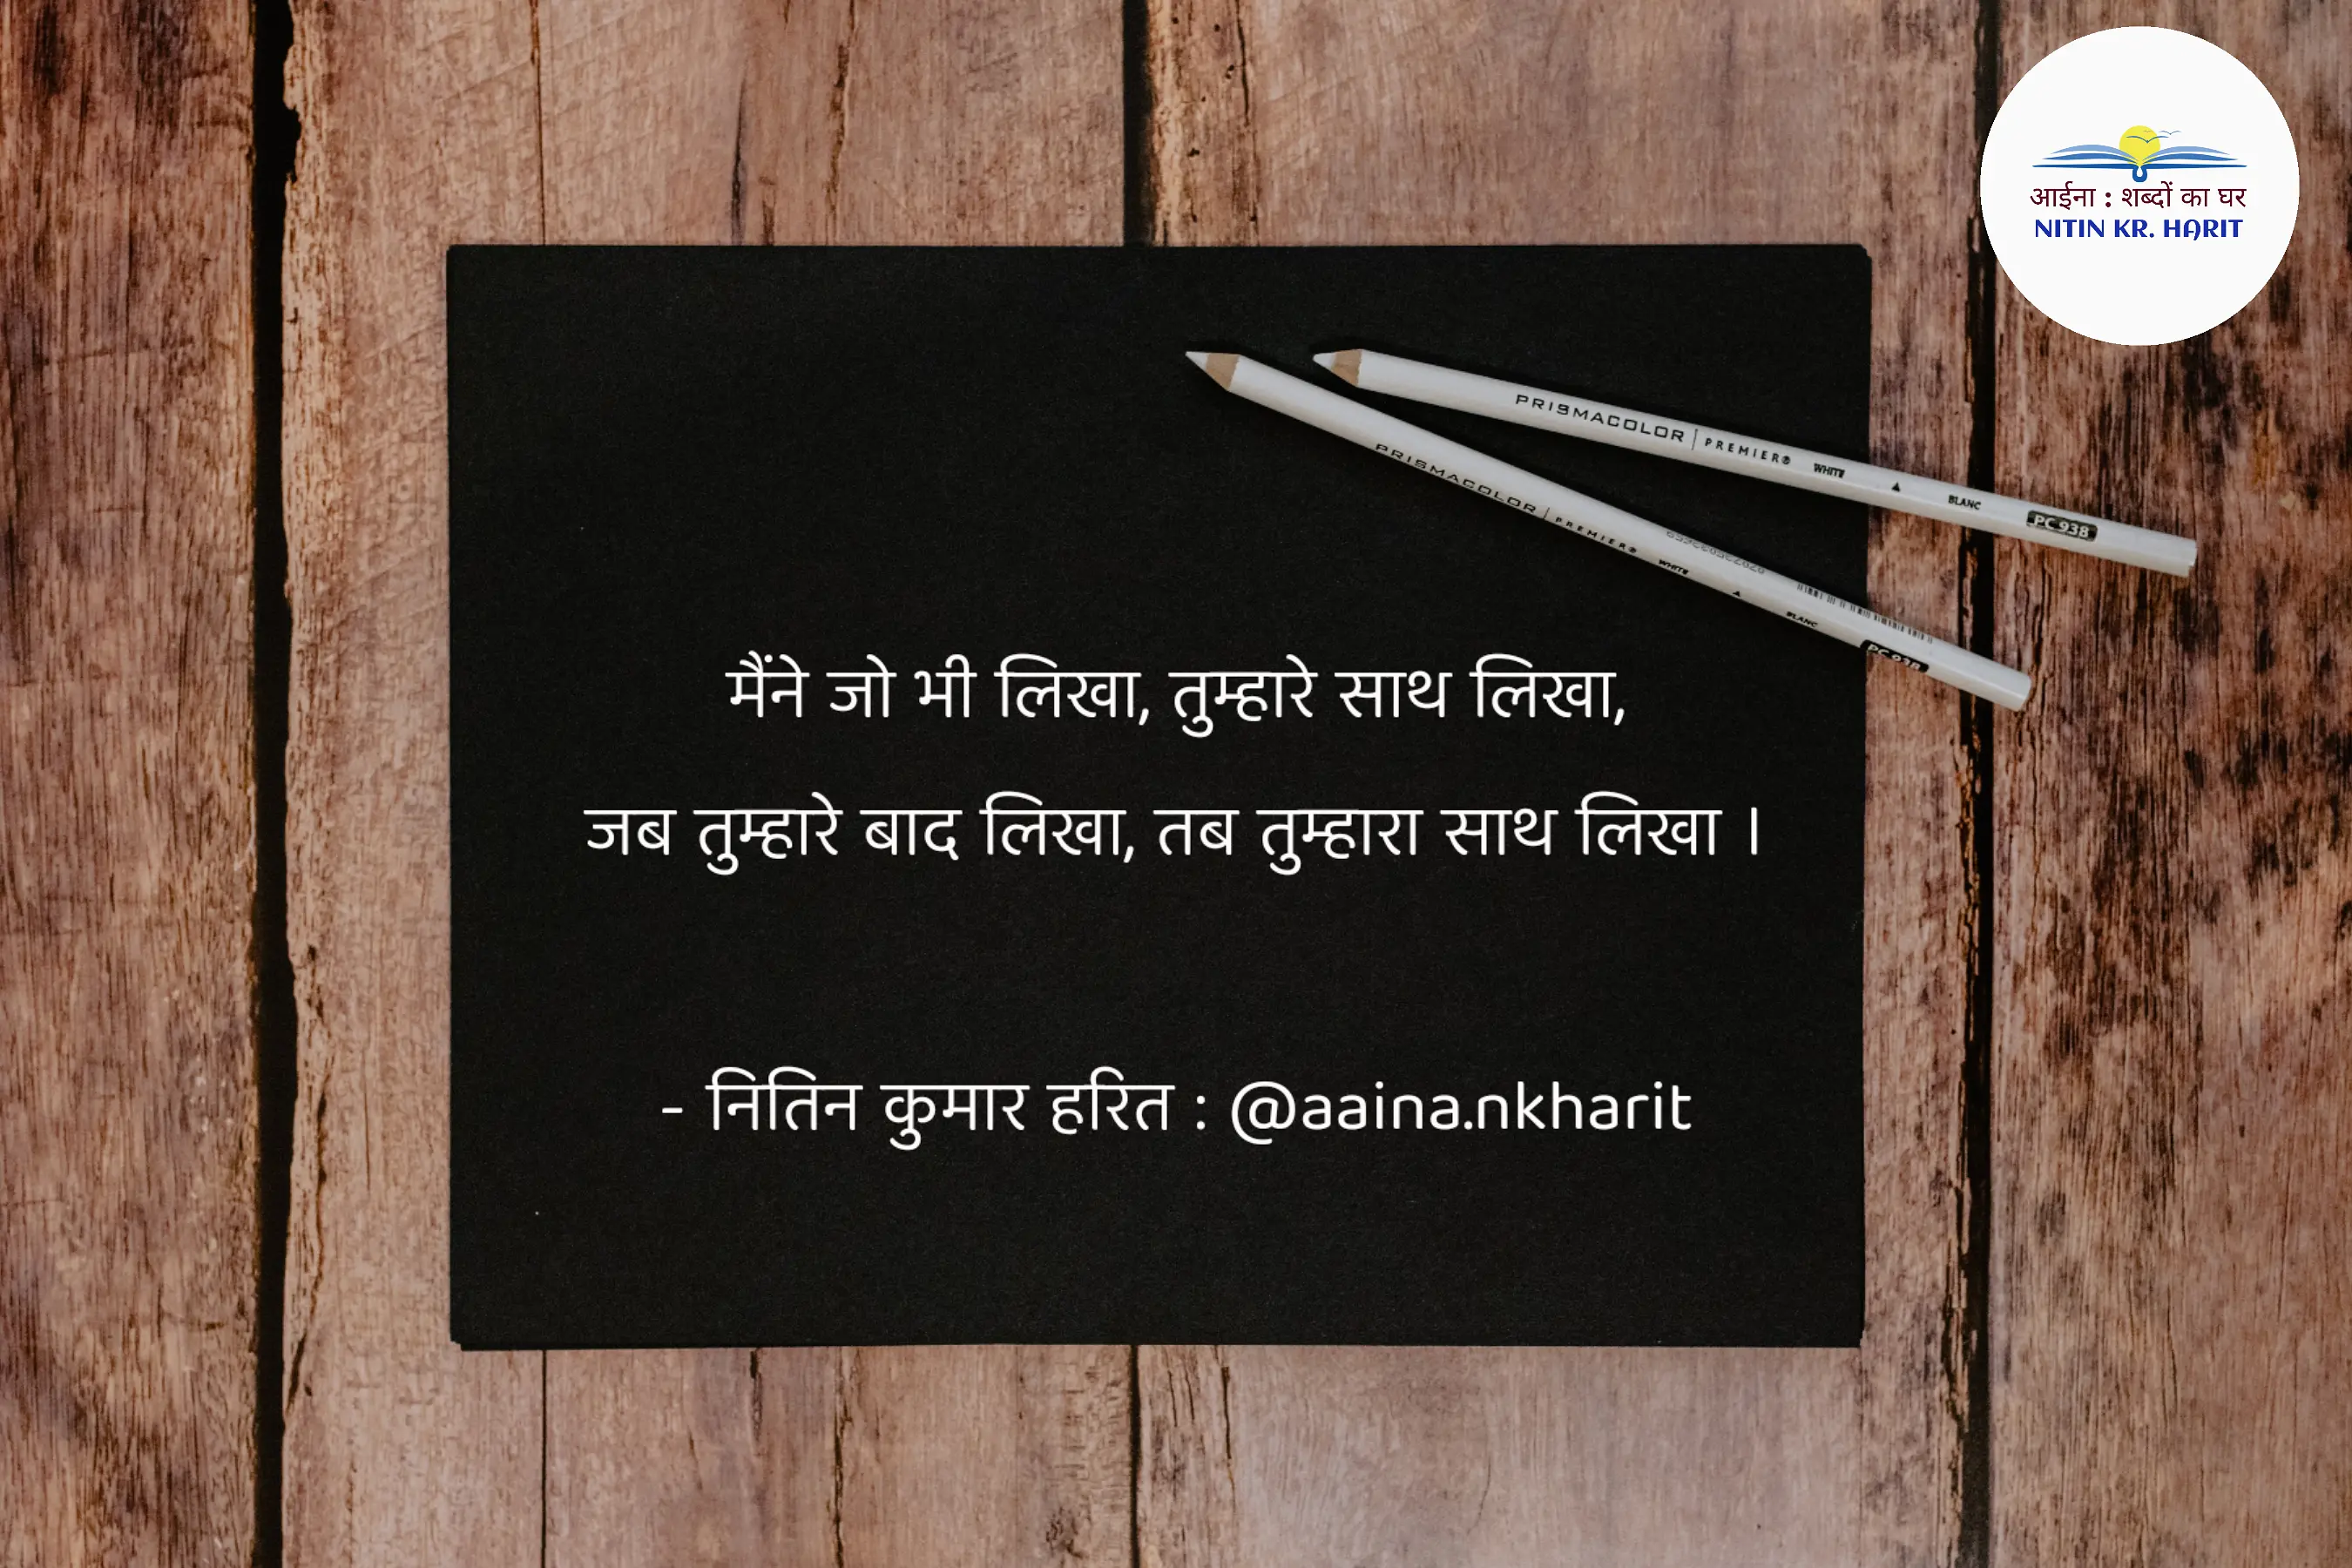 आईना : शब्दों का घर
NITIN KR. HARIT
PRISMACOLOR | PREMIER® WHITE ▲ BLANC PC 938
PRISMACOLOR | PREMIER® WHITE ▲ BLANC PC 938
मैंने जो भी लिखा, तुम्हारे साथ लिखा,
जब तुम्हारे बाद लिखा, तब तुम्हारा साथ लिखा ।
- नितिन कुमार हरित : @aaina.nkharit